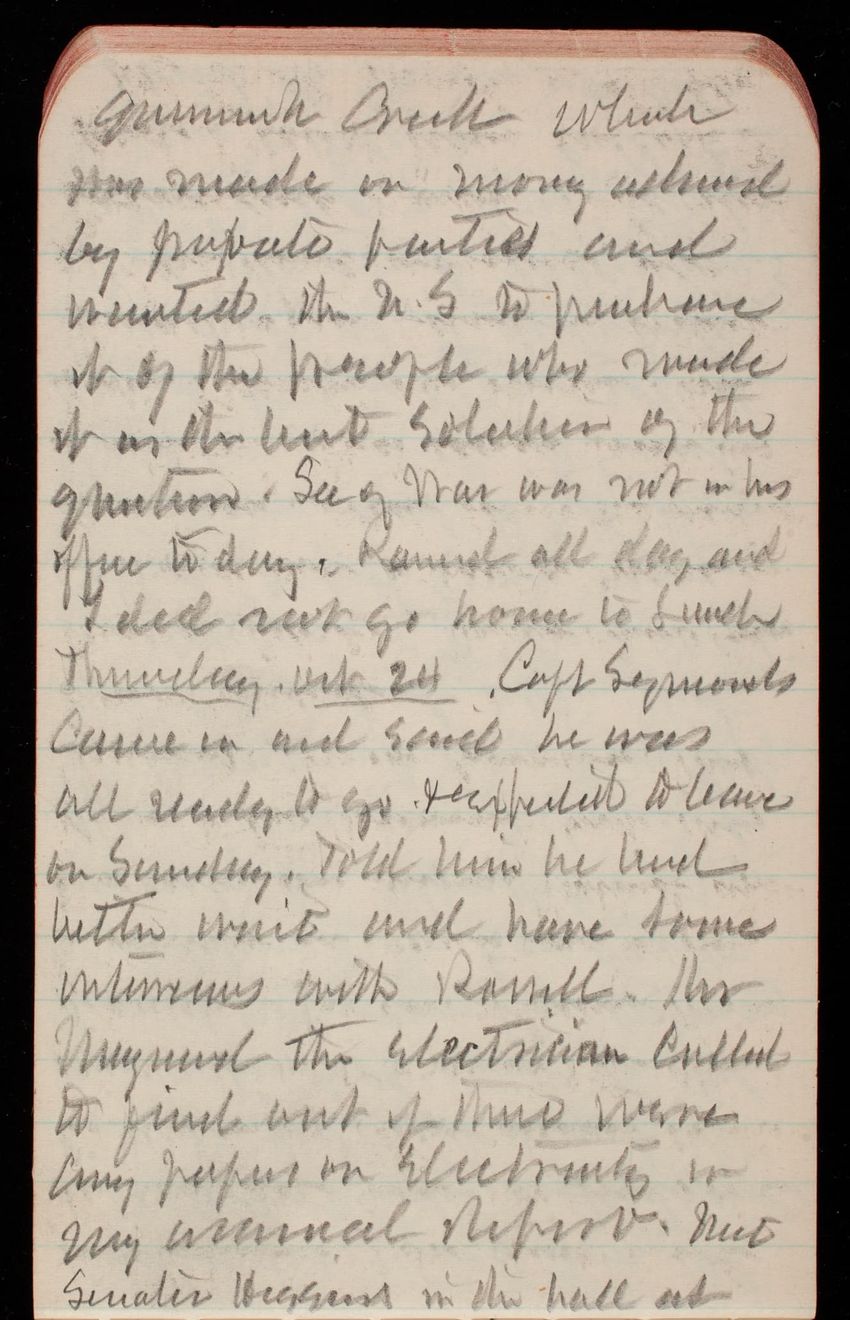 Creek which
was made on money advanced
by private parties and
wanted the U.S to purchase
it of the people who made
it as the best solution of the
question. Secy War was not in his
office to day. Rained all day and
I did not go home to lunch
Thursday. Oct 24 . Capt Symonds
Came in and said he was
all ready to go & expected to leave
on Sunday. Told him he had
better wait and have some
interviews with Rossell. Mr
Maynard the Electrician Called
to find out if there were
any papers on Electricity in
my annual Report. Met
Senator Higgins in the hall at